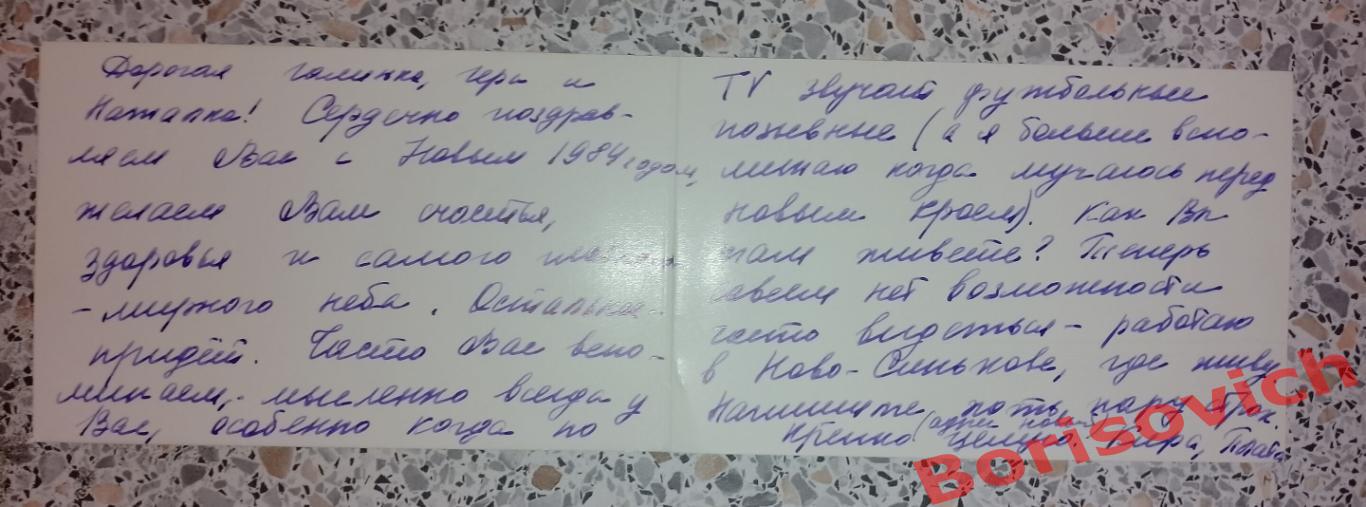 Дорогая галинка, гера и
Наталка! Сердечно поздрав-
ляем Вас с Новым 1984 годом,
желаем Вам счастья,
здоровья и самого
-мирного неба. Остальное-
придёт. Часто Вас вспо-
минаем, - мысленно всегда у
Вас, особенно когда по
TV звучат футбольные
позывные (а я больше вспо-
минаю когда мучаюсь перед
новым кроем). Как Вы
там живете? Теперь
совсем нет возможности
часто видеться - работаю
в Ново-Синькове, где живу
Напишите хоть пару строк.
Крепко целую
Borisovich